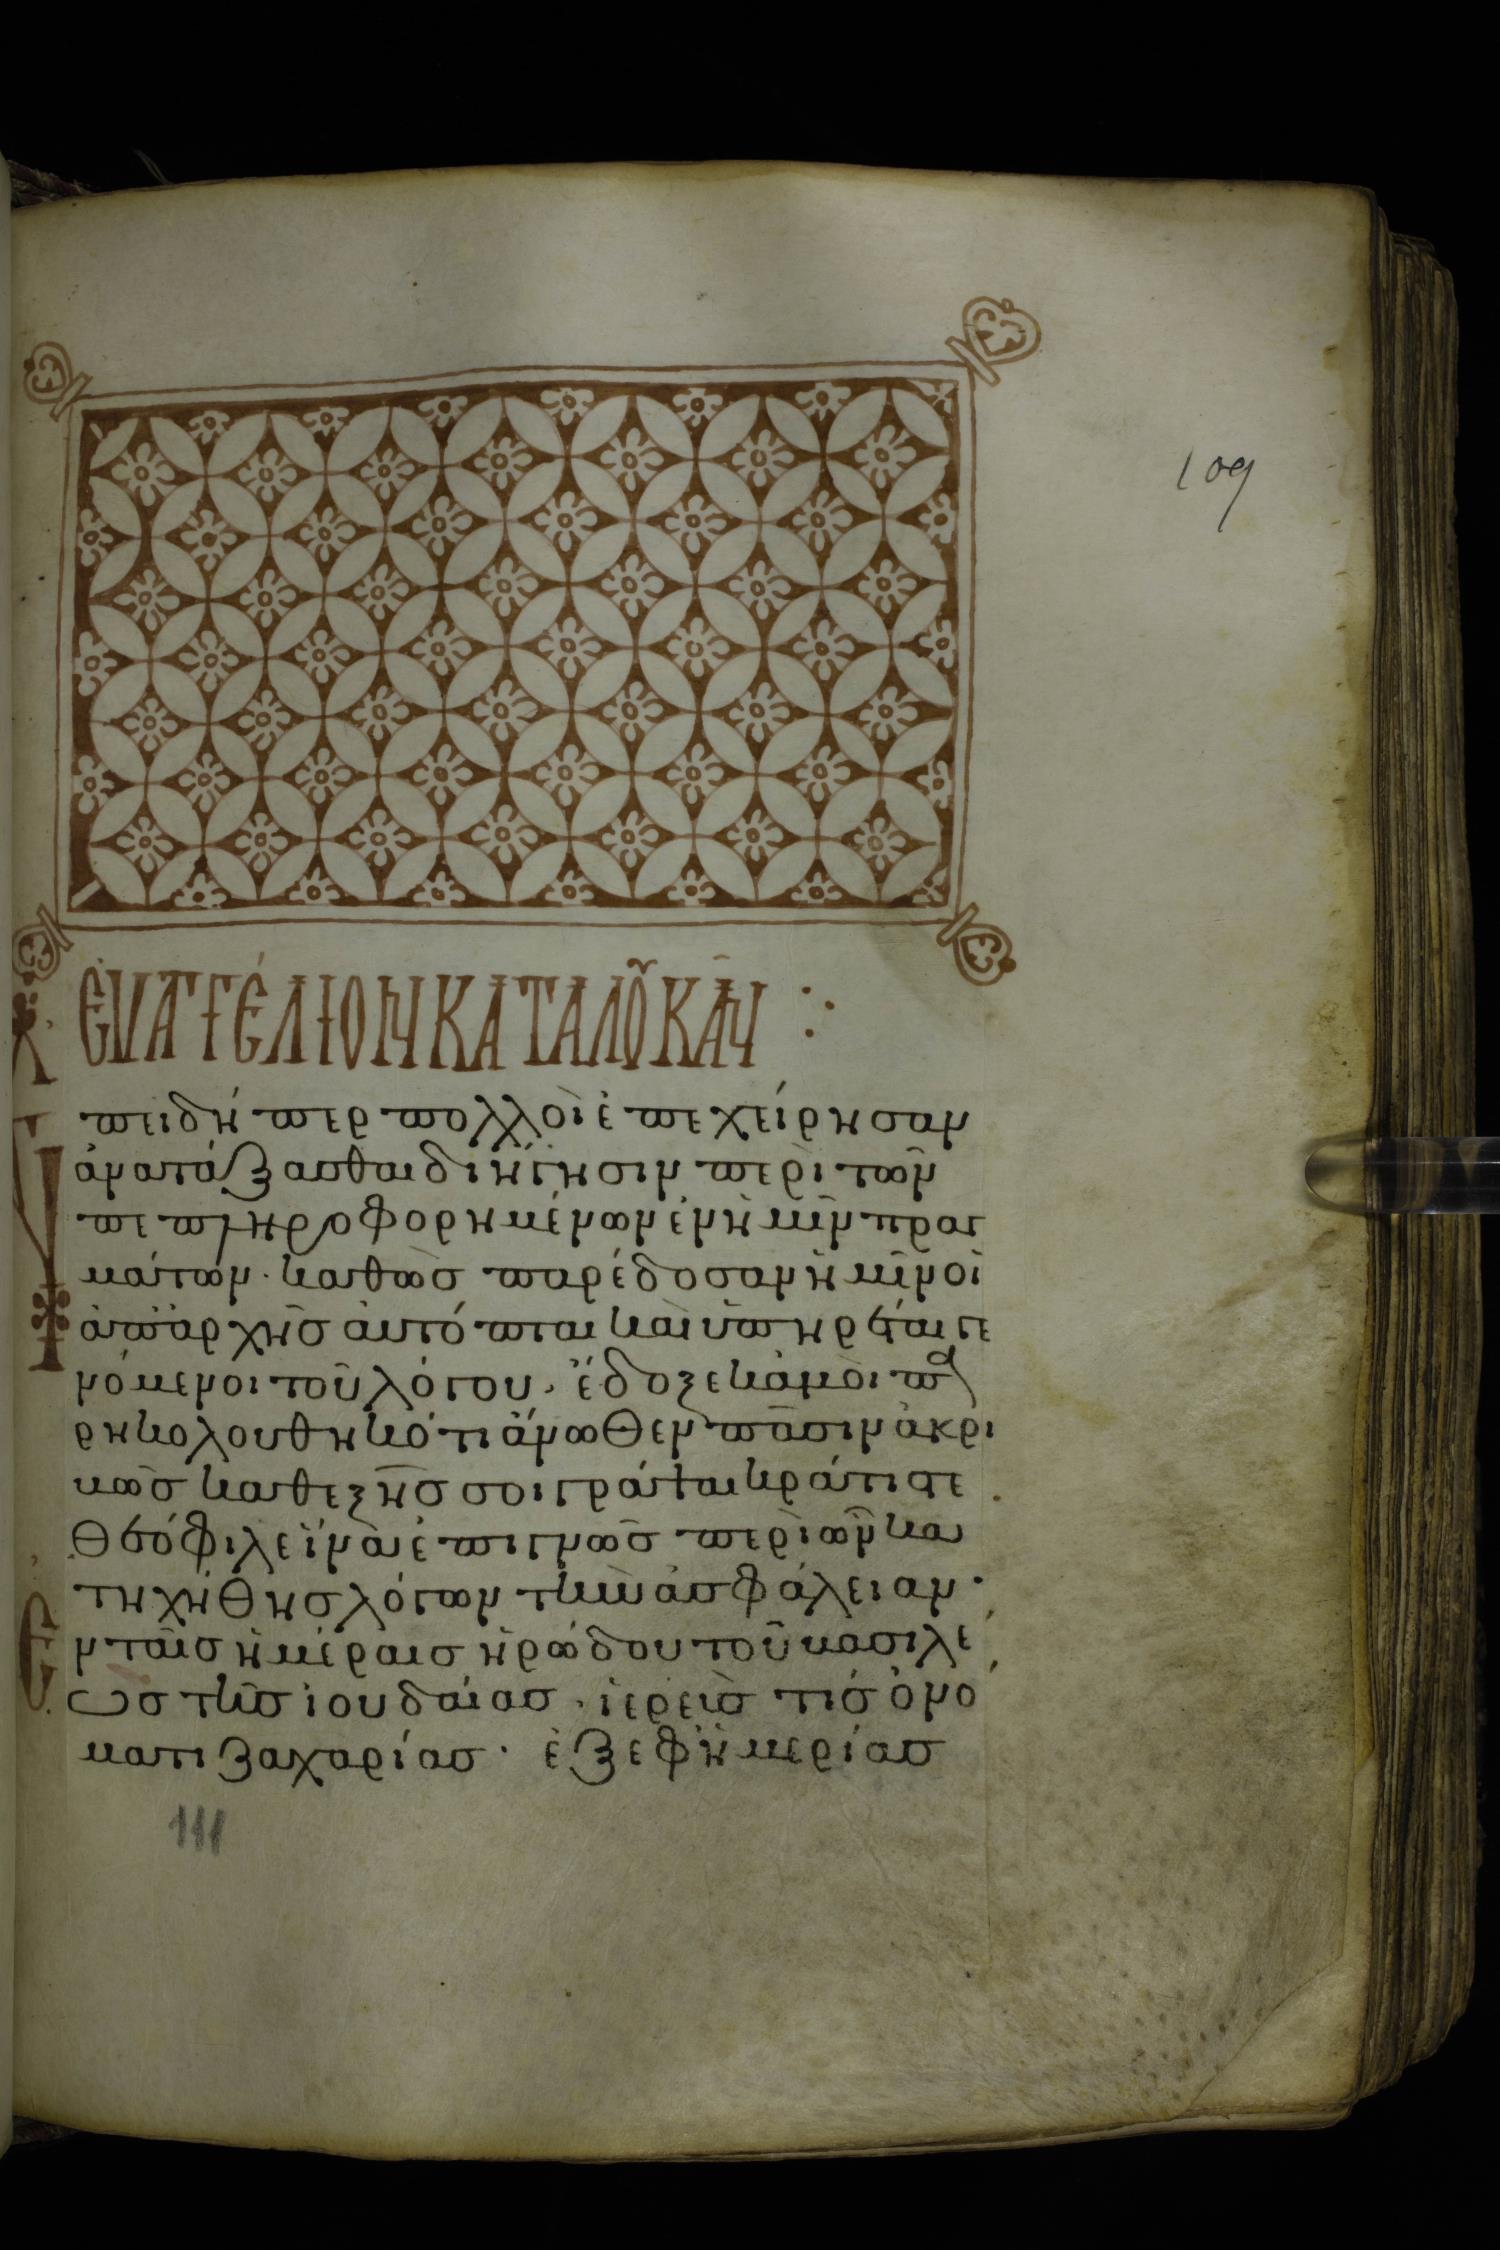 109
ΕΥΑΓΓΕΛΙΟΝ ΚΑΤΑ ΛΟΥΚΑΝ
Επειδήπερ πολλοὶ ἐπεχείρησαν
ἀνατάξασθαι διήγησιν περὶ τῶν
πεπληροφορημένων ἐν ἡμῖν πραγ
μάτων· καθὼς παρέδοσαν ἡμῖν οἱ
ἀπ' ἀρχῆς αὐτόπται καὶ ὑπηρέται γε
νόμενοι τοῦ λόγου· ἔδοξε κἀμοὶ πα
ρηκολουθηκότι ἄνωθεν πᾶσιν ἀκρι
βῶς καθεξῆς σοι γράψαι κράτιστε
Θεόφιλε ἵνα ἐπιγνῶς περὶ ὧν κα
τηχήθης λόγων τὴν ἀσφάλειαν·
Εν ταῖς ἡμέραις ἡρώδου τοῦ βασιλέ
ως τῆς ἰουδαίας· ἱερεὺς τὶς ὀνό
ματι ζαχαρίας· ἐξ ἐφημερίας
111